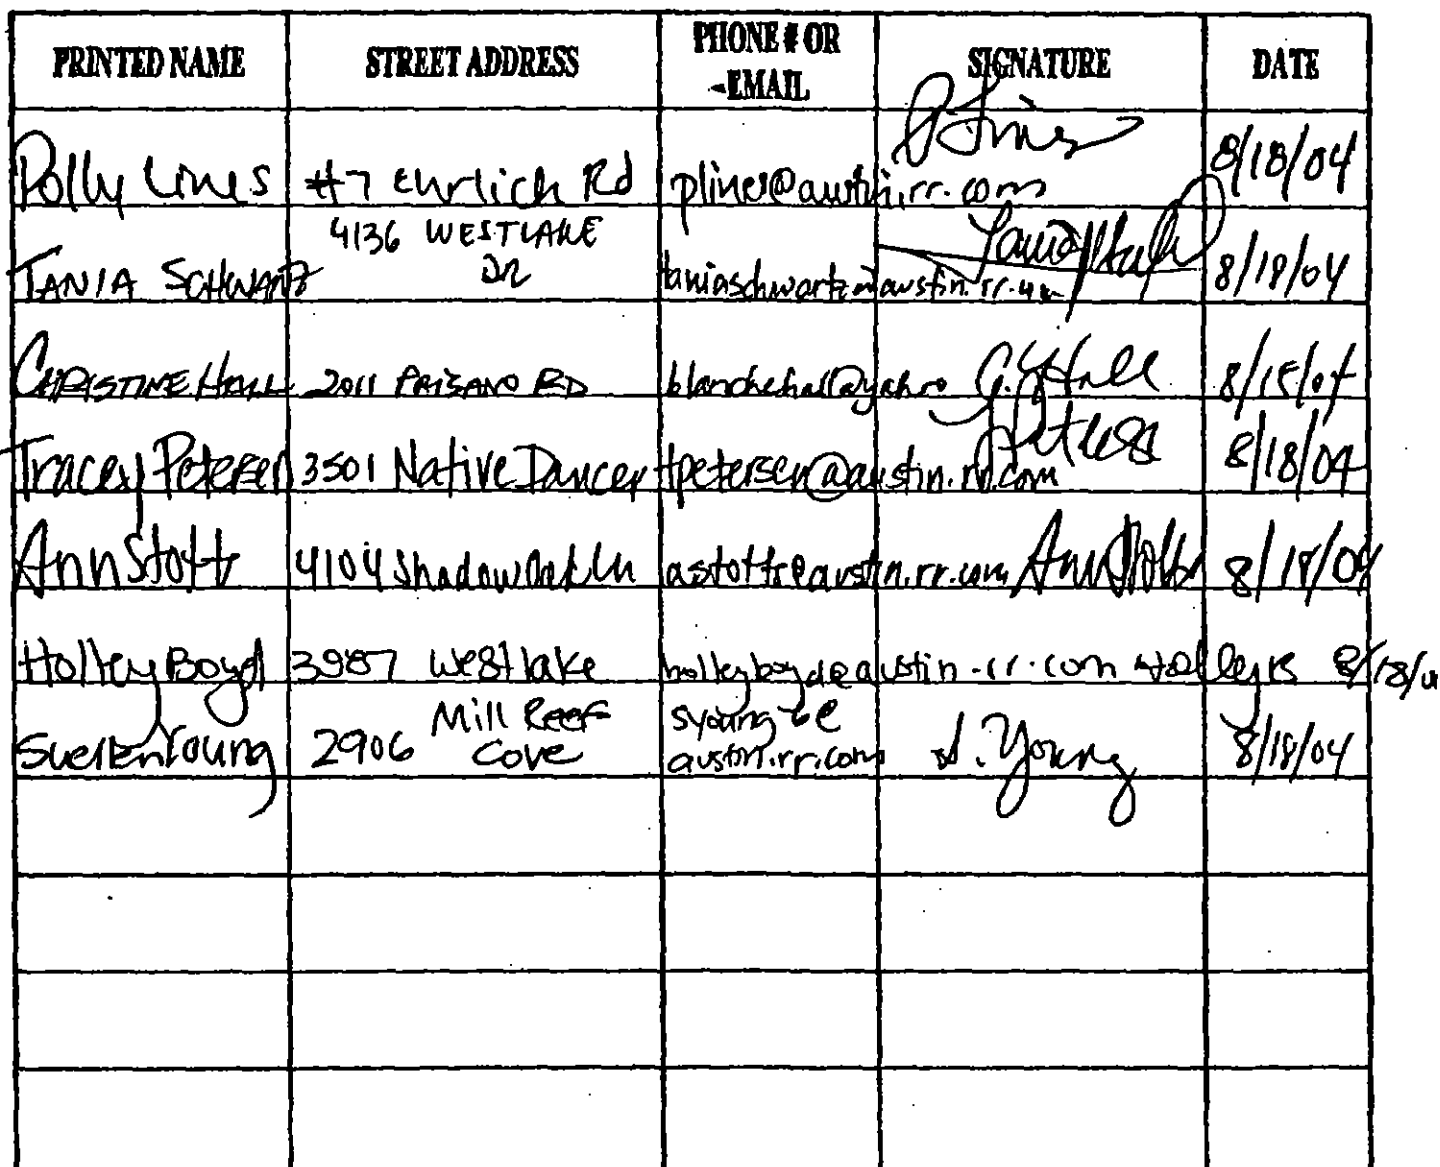 PRINTED NAME STREET ADDRESS PHONE # OR EMAIL SIGNATURE DATE
Polly Lines #7 Ehrlich Rd plines@austin.rr.com P Lines 8/18/04
TANIA SCHWARTZ 4136 WESTLAKE DR taniaschwartz@austin.rr.com 8/18/04
CHRISTINE HALL 2011 PAISANO RD blanchehall@yahoo 8/18/04
Tracey Petersen 3501 Native Dancer tpetersen@austin.rr.com 8/18/04
Ann Stott 4104 Shadow Oak Ln astotts@austin.rr.com Ann Stott 8/18/04
Holley Boyd 3987 Westlake holleyboyd@austin.rr.com 8/18/04
Suellen Young 2906 Mill Reef Cove syoung6@austin.rr.com S. Young 8/18/04